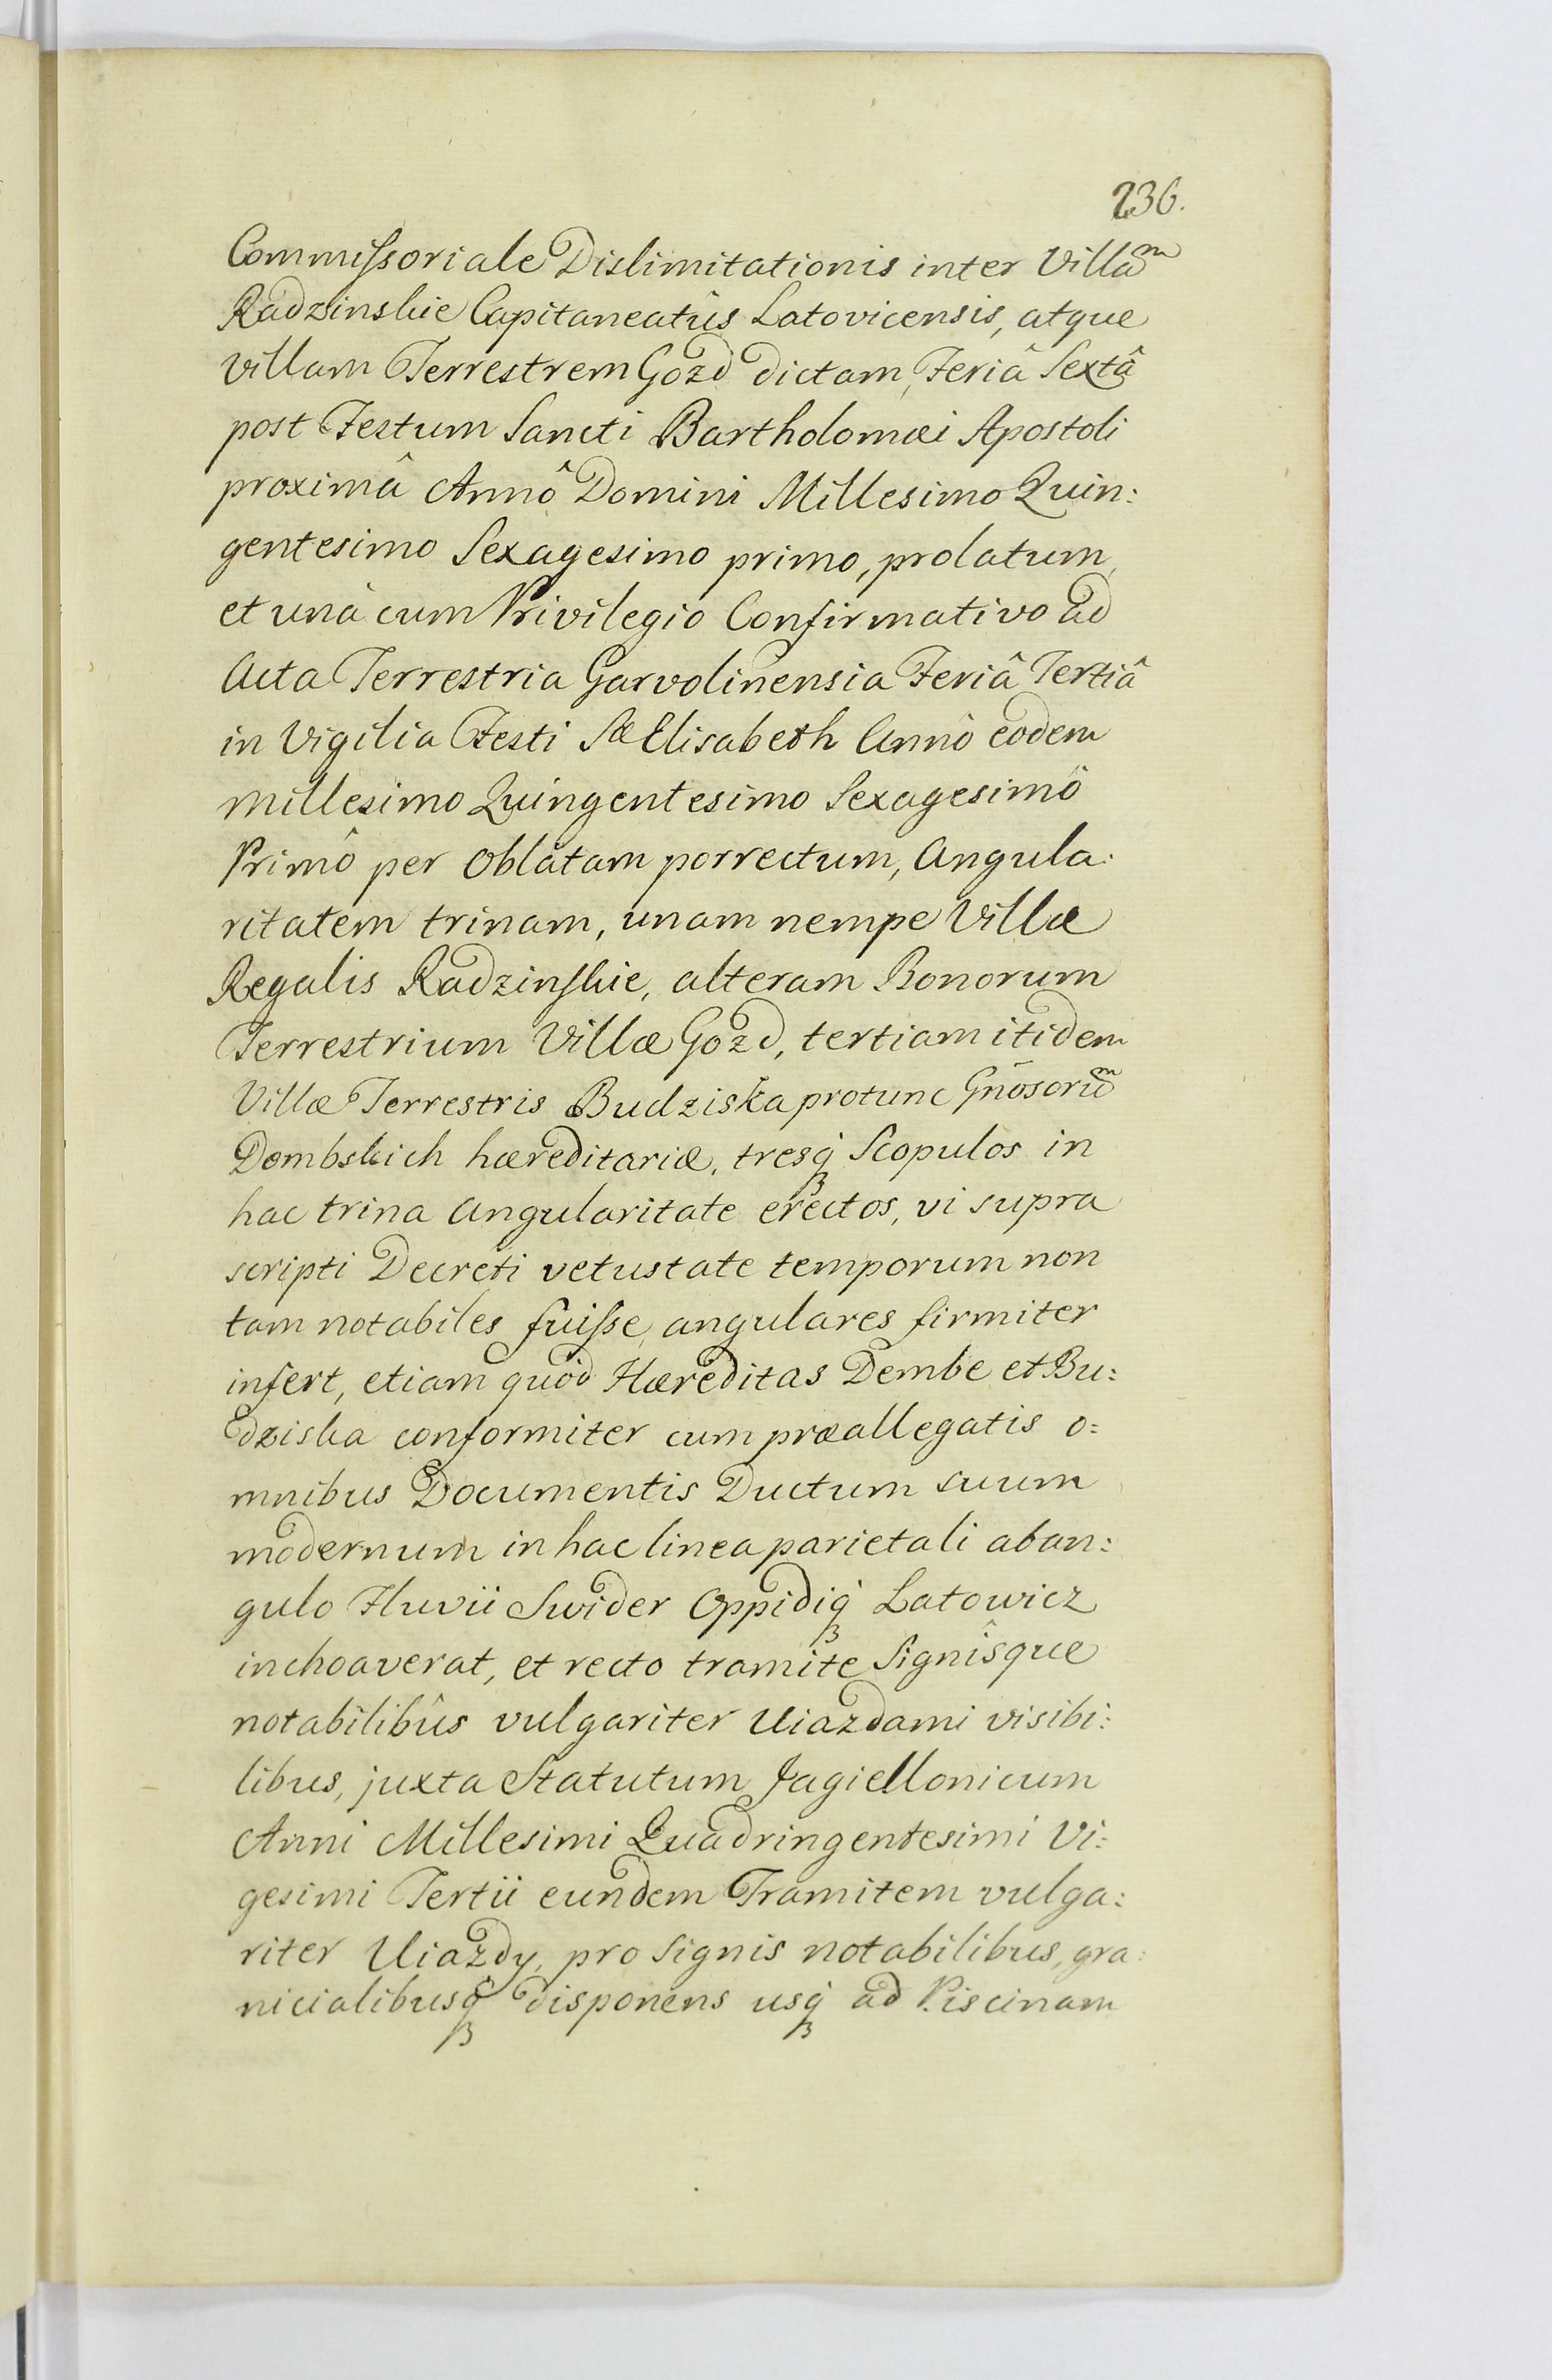 236.
Commissoriale Dislimitationis inter Villam
Radzinskie Capitaneatûs Latovicensis, atque
villam Terrestrem Gozd dictam, Feriâ Sextâ
post Festum Sancti Bartholomæi Apostoli
proximâ Annô Domini Millesimo Quin:
gentesimo Sexagesimo primo, prolatum,
et unà cum Privilegio Confirmativo ad
Acta Terrestria Garvolinensia Feriâ Tertiâ
in Vigilia Festi Sæ Elisabeth Annô eodem
Millesimo Quingentesimo Sexagesimô
Primô per Oblatam porrectum, Angula:
ritatem trinam, unam nempe Villæ
Regalis Radzinskie, alteram Bonorum
Terrestrium Villæ Gozd, tertiam itidem
Villæ Terrestris Budziska protunc Gñosorum
Dembskich hæreditariæ, tresq́ꝫ Scopulos in
hac trina Angularitate erectos, vi supra
scripti Decreti vetustate temporum non
tam notabiles fuisse, angulares firmiter
infert, etiam quòd Hæreditas Dembe et Bu:
dziska conformiter cum præallegatis o:
mnibus Documentis Ductum suum
modernum in hac linea parietali ab an:
gulo Fluvii Swider Oppidiq́ꝫ Latowicz
inchoaverat, et recto tramite Signîsque
notabilibûs vulgariter Uiazdami visibi:
libus, juxta Statutum Jagiellonicum
Anni Millesimi Quadringentesimi Vi:
gesimi Tertii eundem Tramitem vulga:
riter Uiazdy, pro Signis notabilibus, gra:
nicialibusq́ꝫ disponens usq́ꝫ ad Piscinam